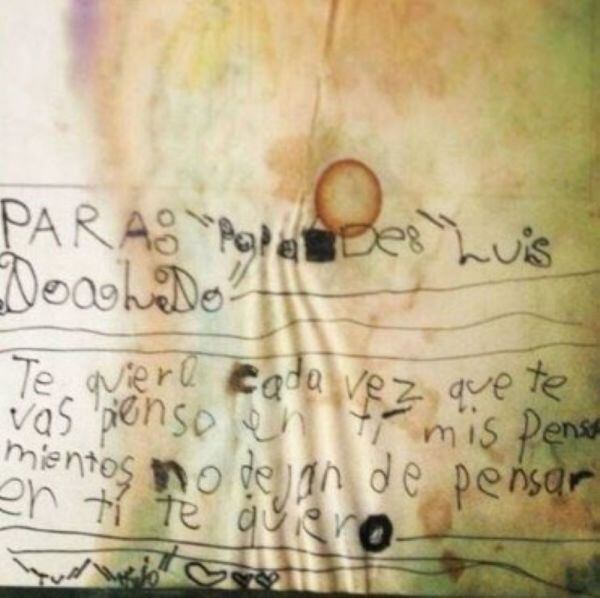 PARA: "Papa Des" Luis
Te quiero cada vez que te
vas pienso en tí mis pensa
mientos no dejan de pensar
en tí te quiero
"Tu" "hijo"